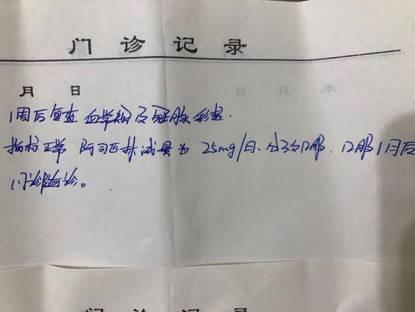 门诊记录
月 日
1周后复查 血常规及冠脉彩超.
指标正常 阿司匹林减量为 25mg/日、分3次口服. 口服1月后
门诊随诊。
门诊记录